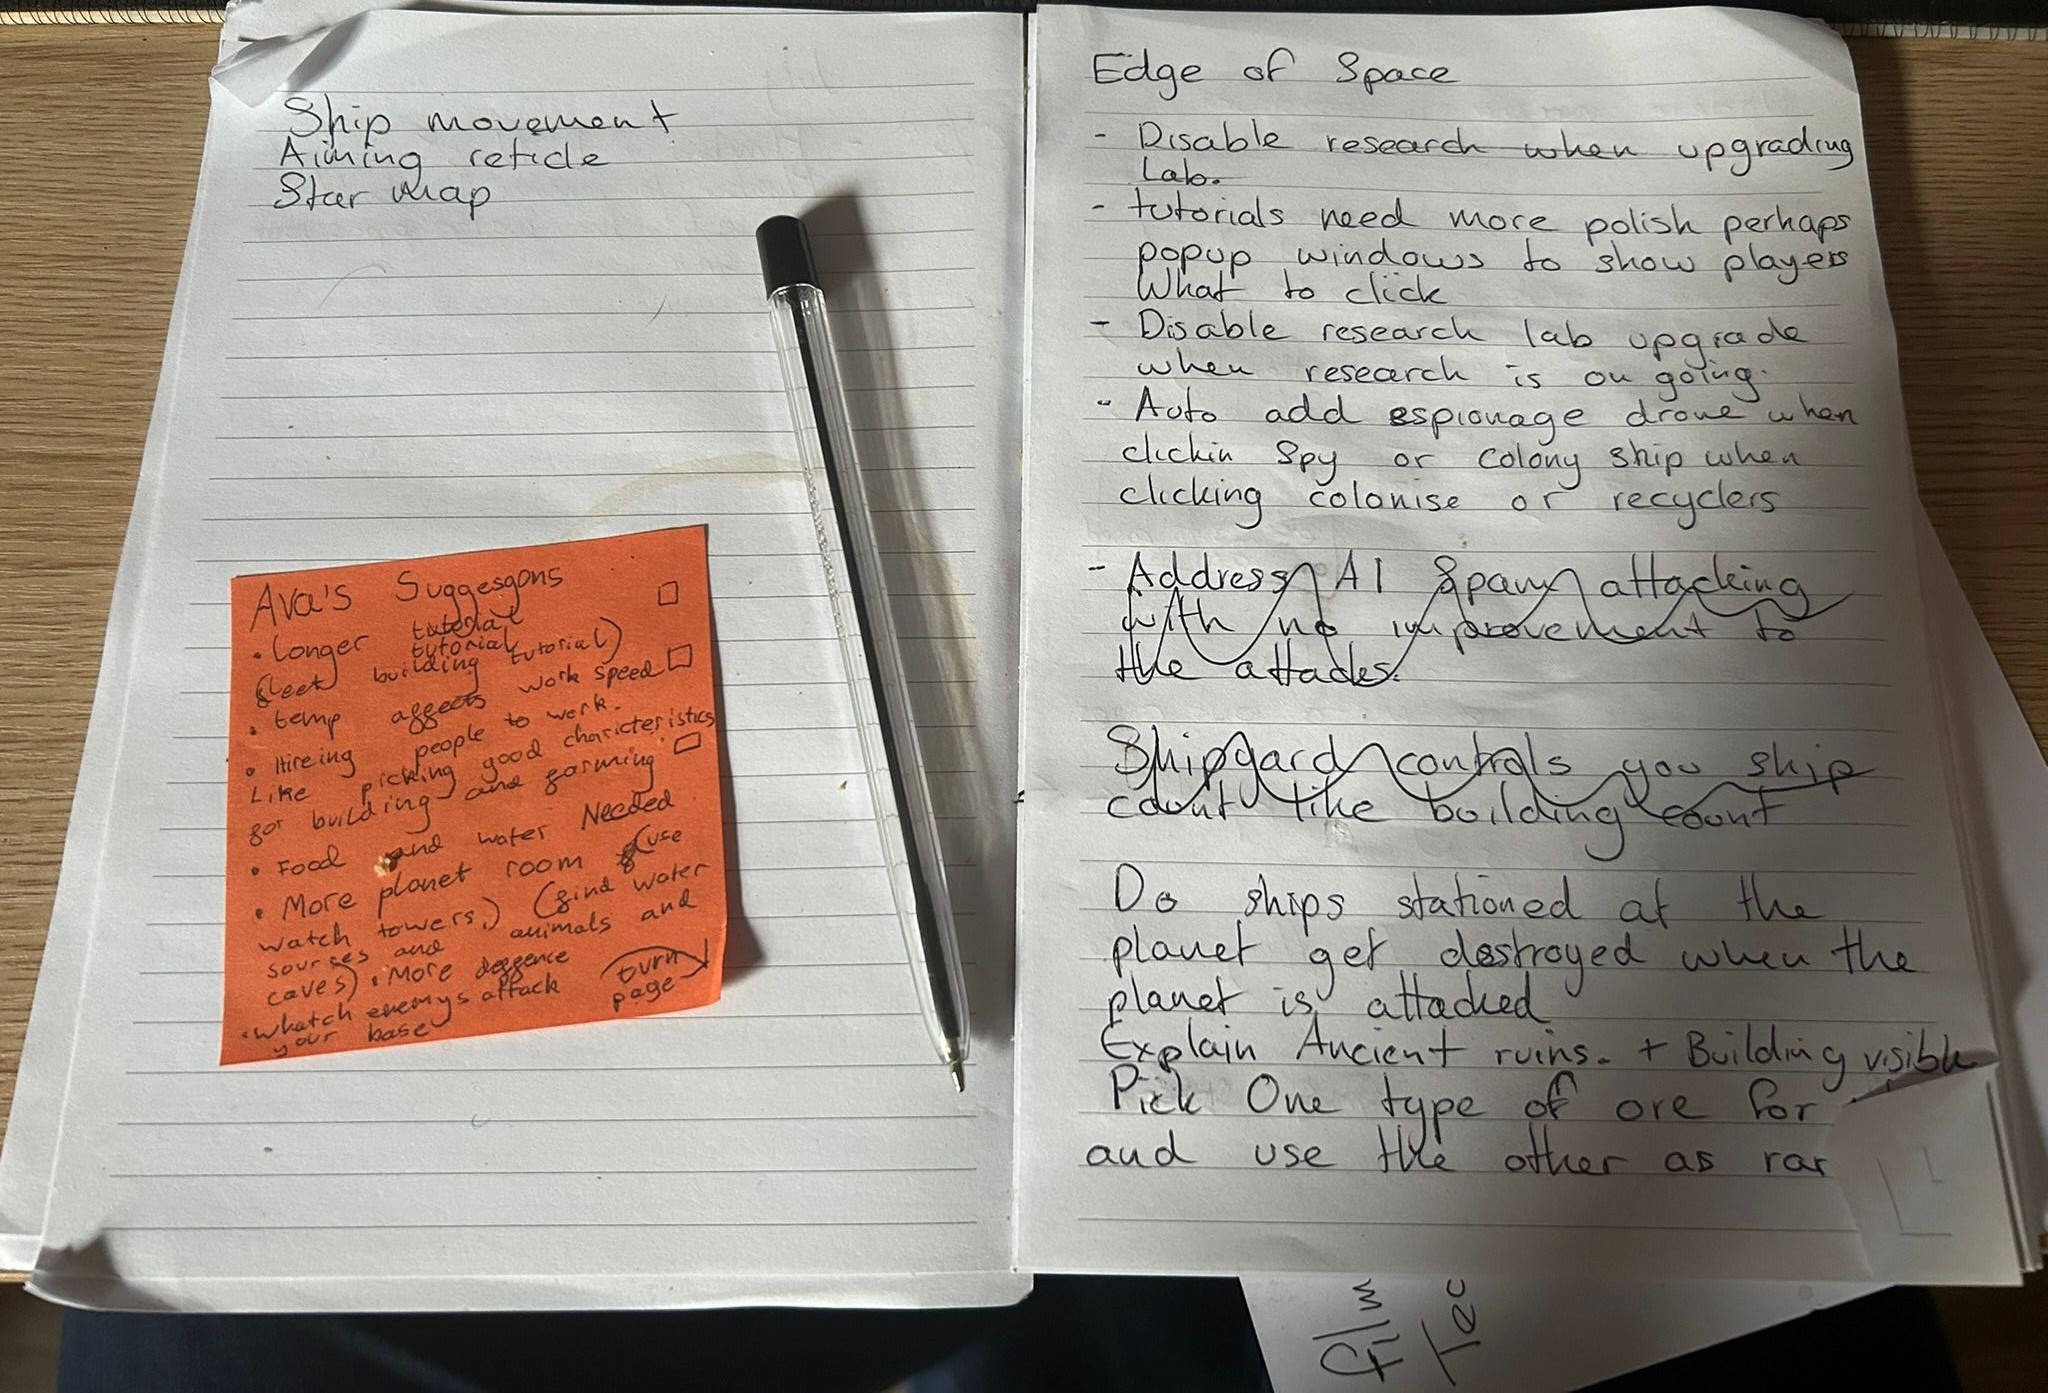 Ship movement
Aiming reticle
Star map
Ava's Suggesgons
• Longer tutorial
tutorial
(fleet building tutorial)
• temp affects work speed
• Hireing people to work.
Like picking good characteristics
for building and farming
• Food and water Needed
• More planet room (use
watch towers,) (find water
sources and animals and
caves) • More deffence
• whatch enemys attack
your base
turn
page
Edge of Space
- Disable research when upgrading
Lab.
- tutorials need more polish perhaps
popup windows to show players
What to click
- Disable research lab upgrade
when research is on going.
- Auto add espionage drone when
clickin Spy or Colony ship when
clicking colonise or recyclers
- Address AI Spam attacking
with no improvement to
the attacks.
Shipyard controls you ship
count like building count
Do ships stationed at the
planet get destroyed when the
planet is attacked
Explain Ancient ruins. + Building visible
Pick One type of ore for
and use the other as rar
Film
Tec